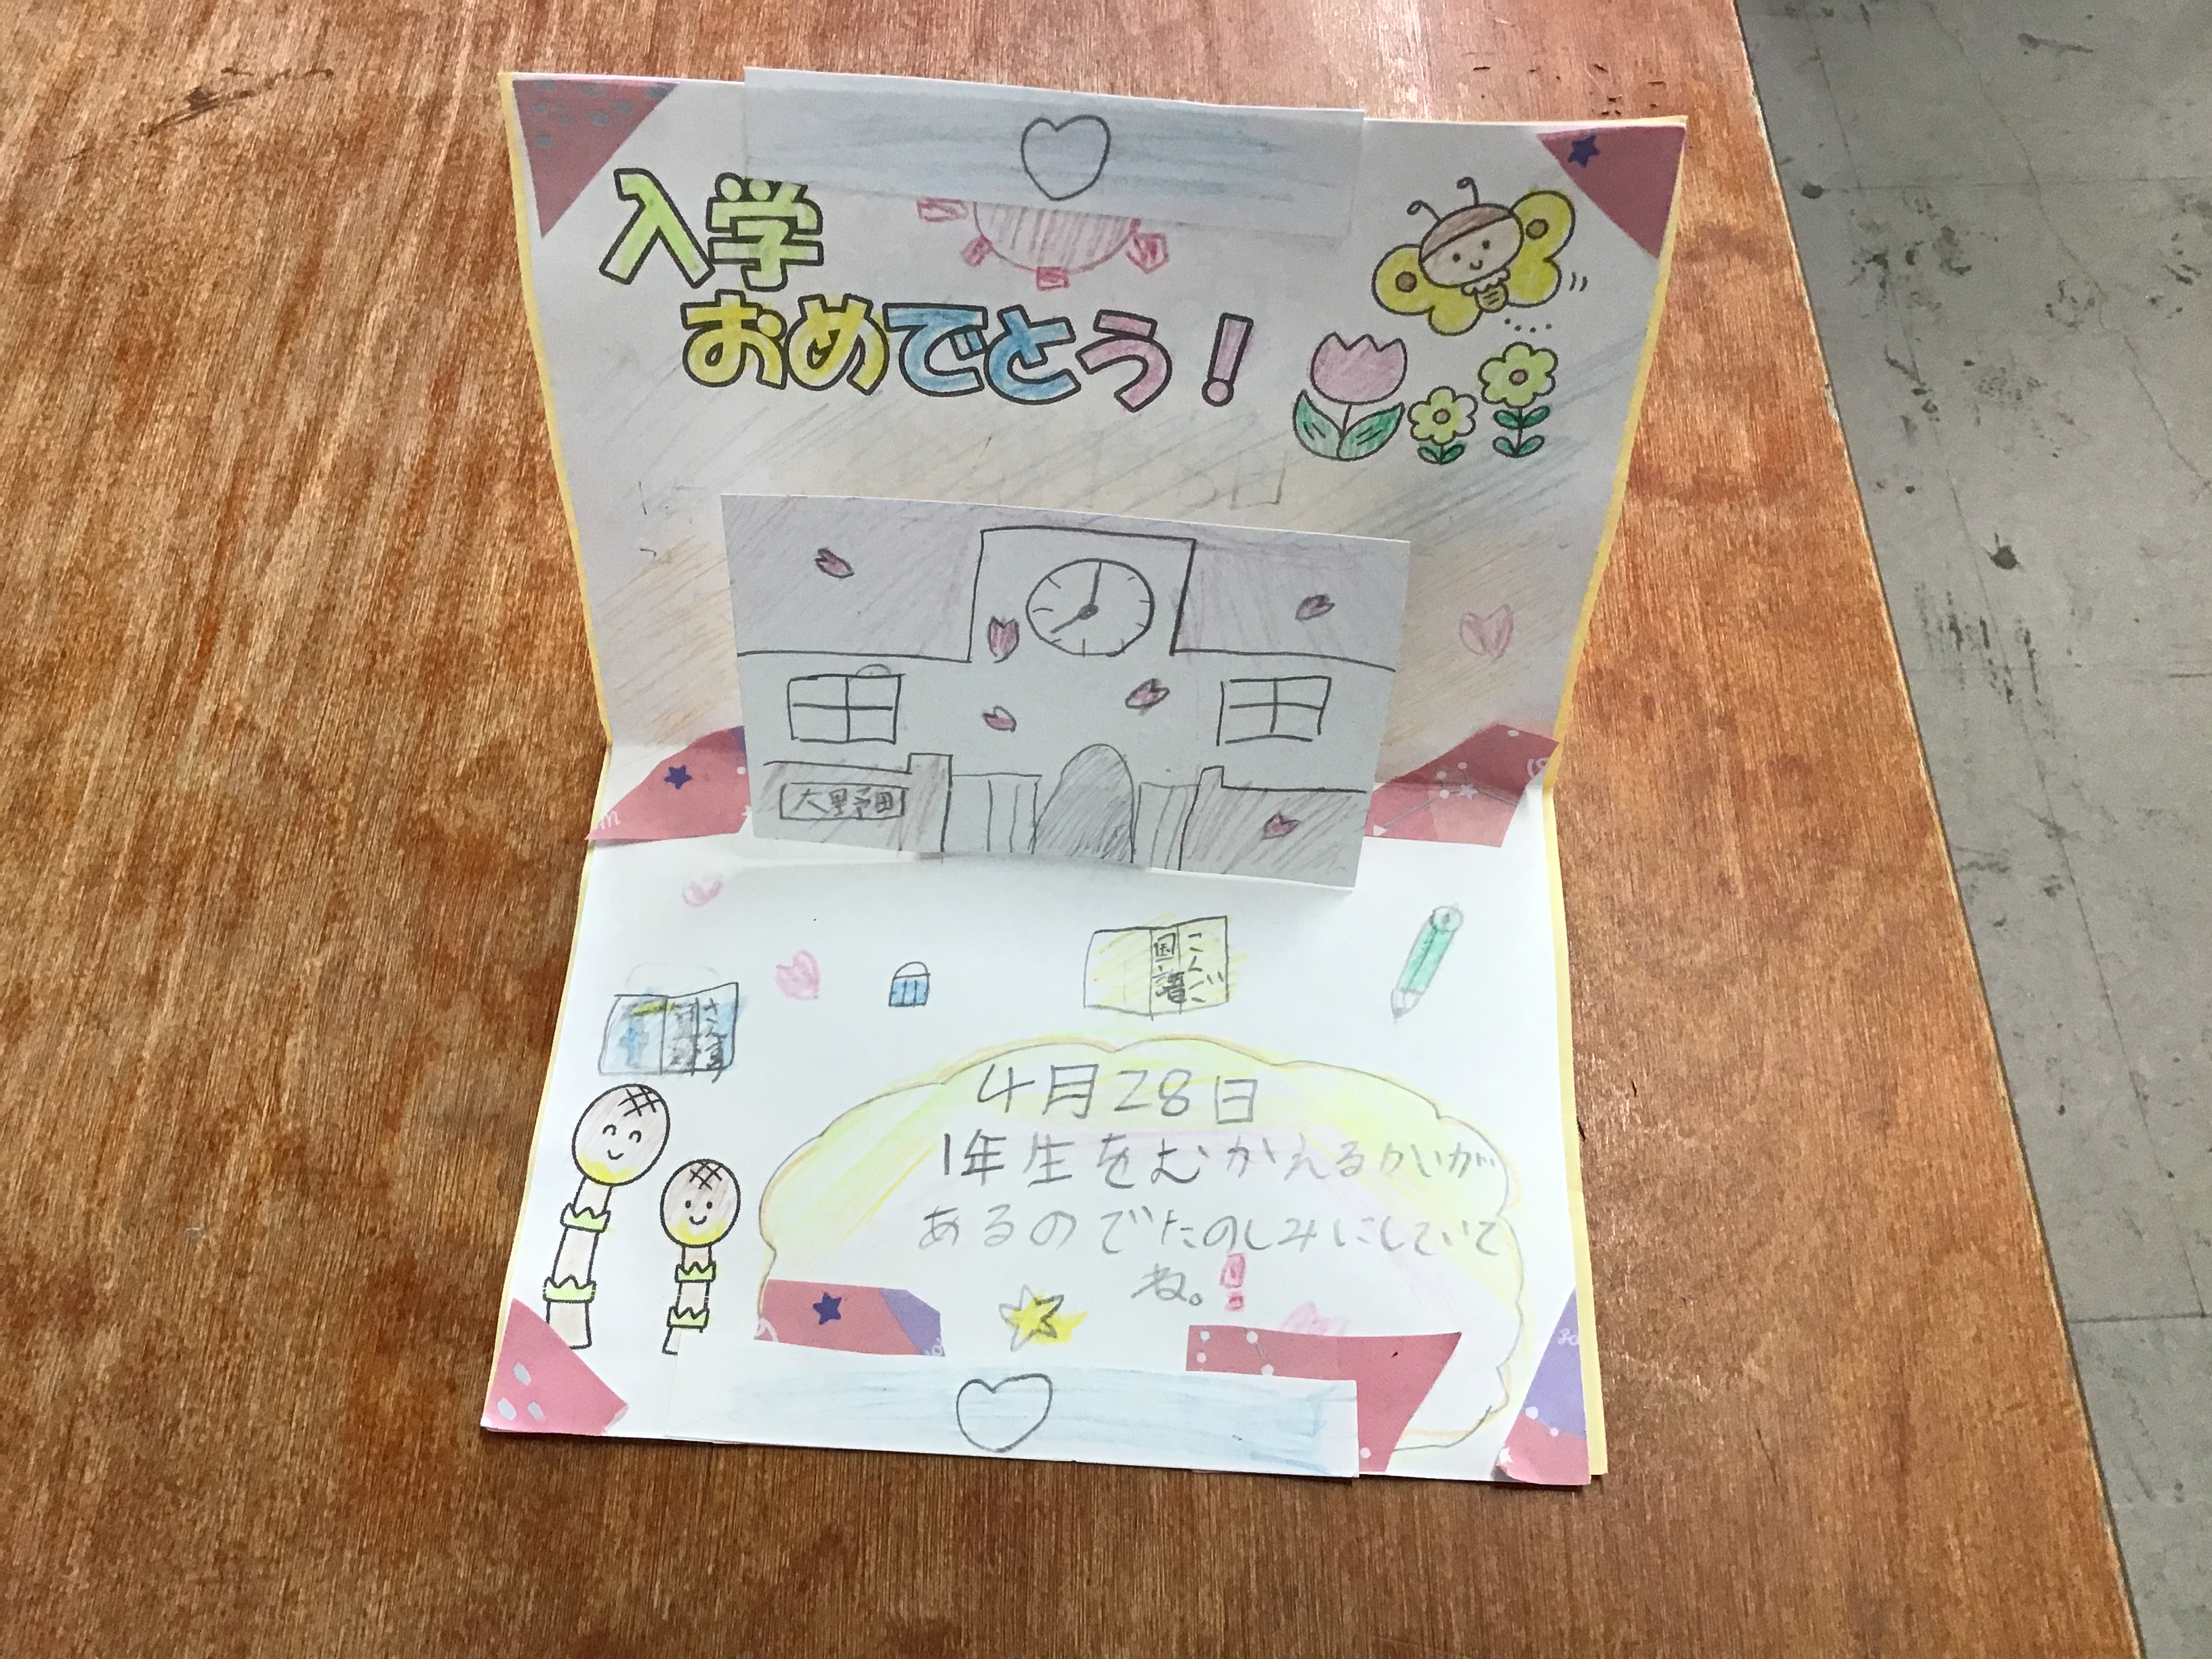 入学
おめでとう！
大野田
こくご
国語
さんすう
4月28日
1年生をむかえるかいが
あるのでたのしみにしていて
ね。！